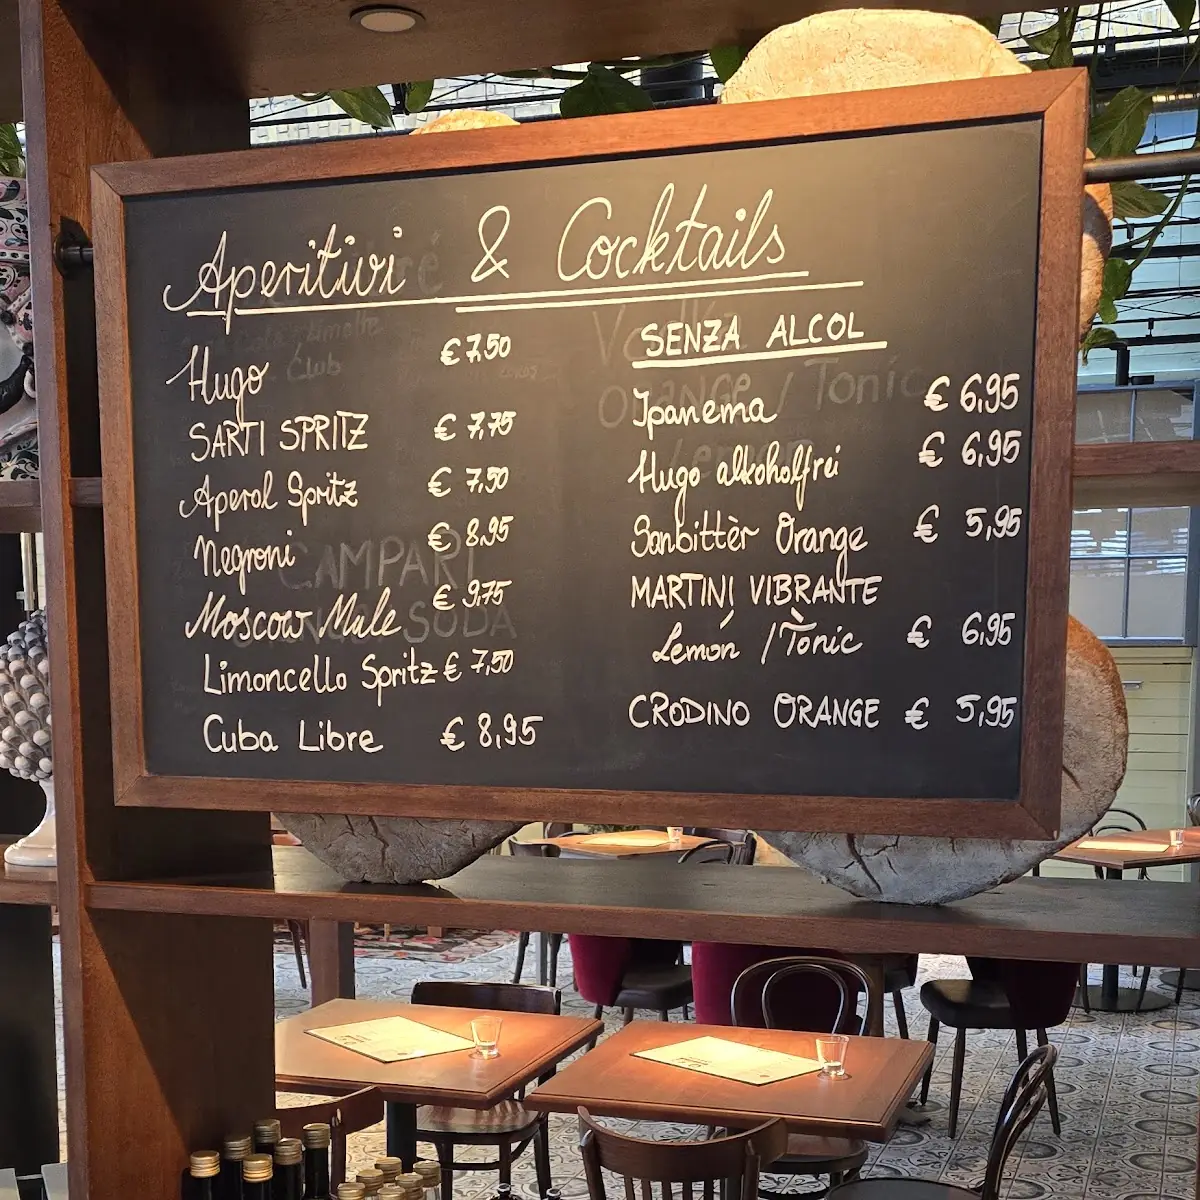 Aperitivi & Cocktails
Hugo € 7,50
SARTI SPRITZ € 7,75
Aperol Spritz € 7,50
Negroni € 8,95
Moscow Mule € 9,75
Limoncello Spritz € 7,50
Cuba Libre € 8,95
SENZA ALCOL
Ipanema € 6,95
Hugo alkoholfrei € 6,95
Sanbittèr Orange € 5,95
MARTINI VIBRANTE
Lemon / Tonic € 6,95
CRODINO ORANGE € 5,95
CAMPARI
SODA
Orange / Tonic
Lemon